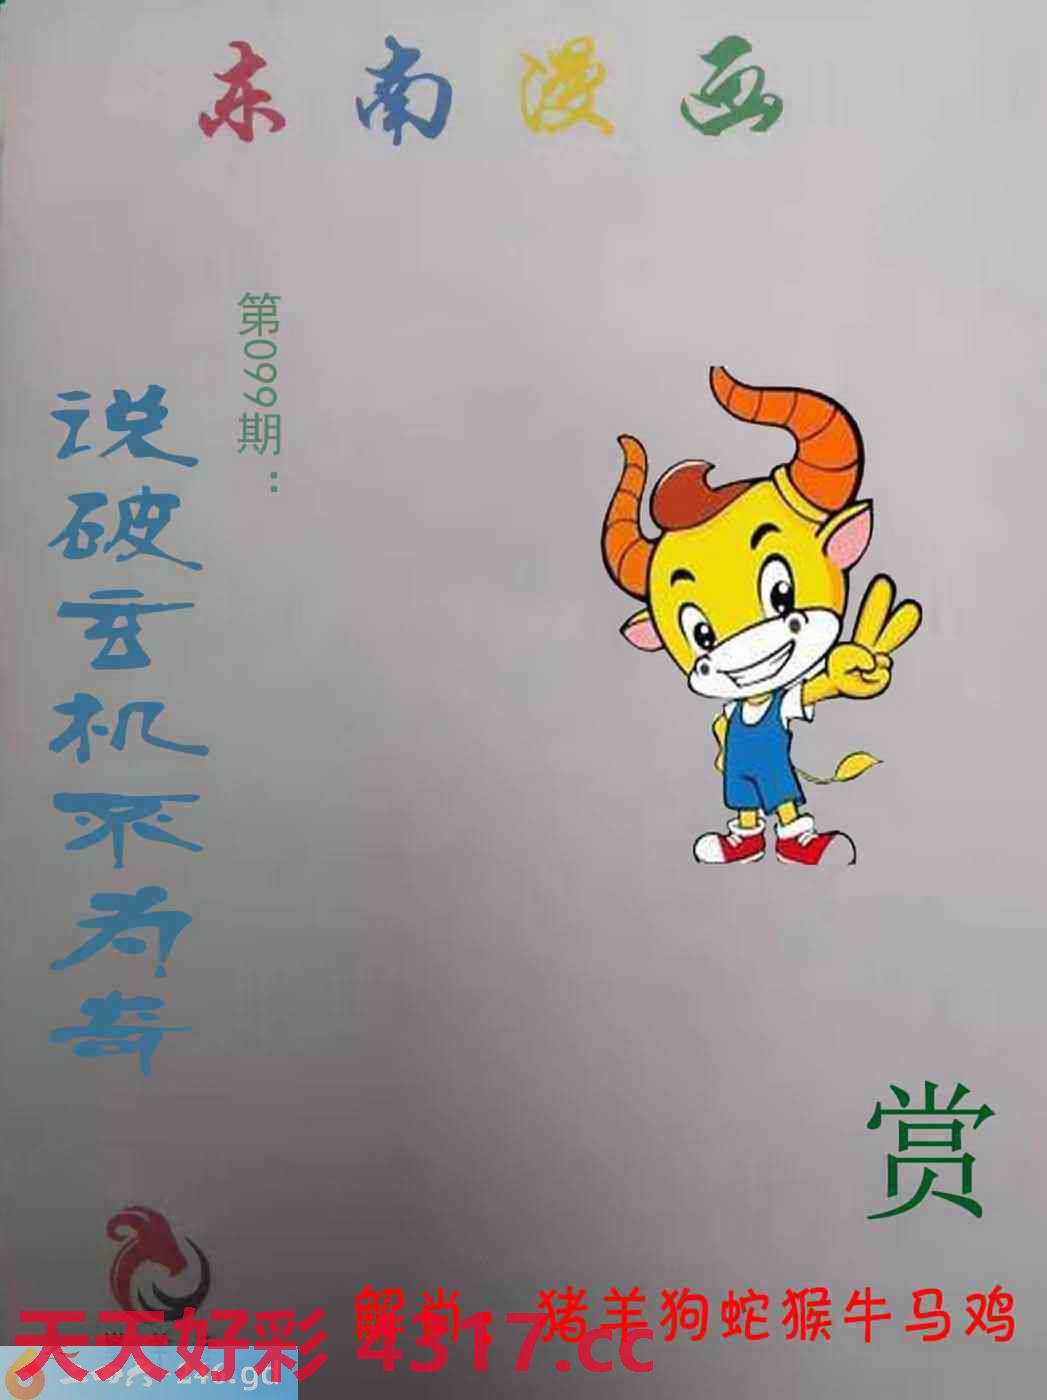 东南漫画
第099期：
说破玄机不为奇
赏
解肖：猪羊狗蛇猴牛马鸡
天天好彩 4317.cc
246.gd